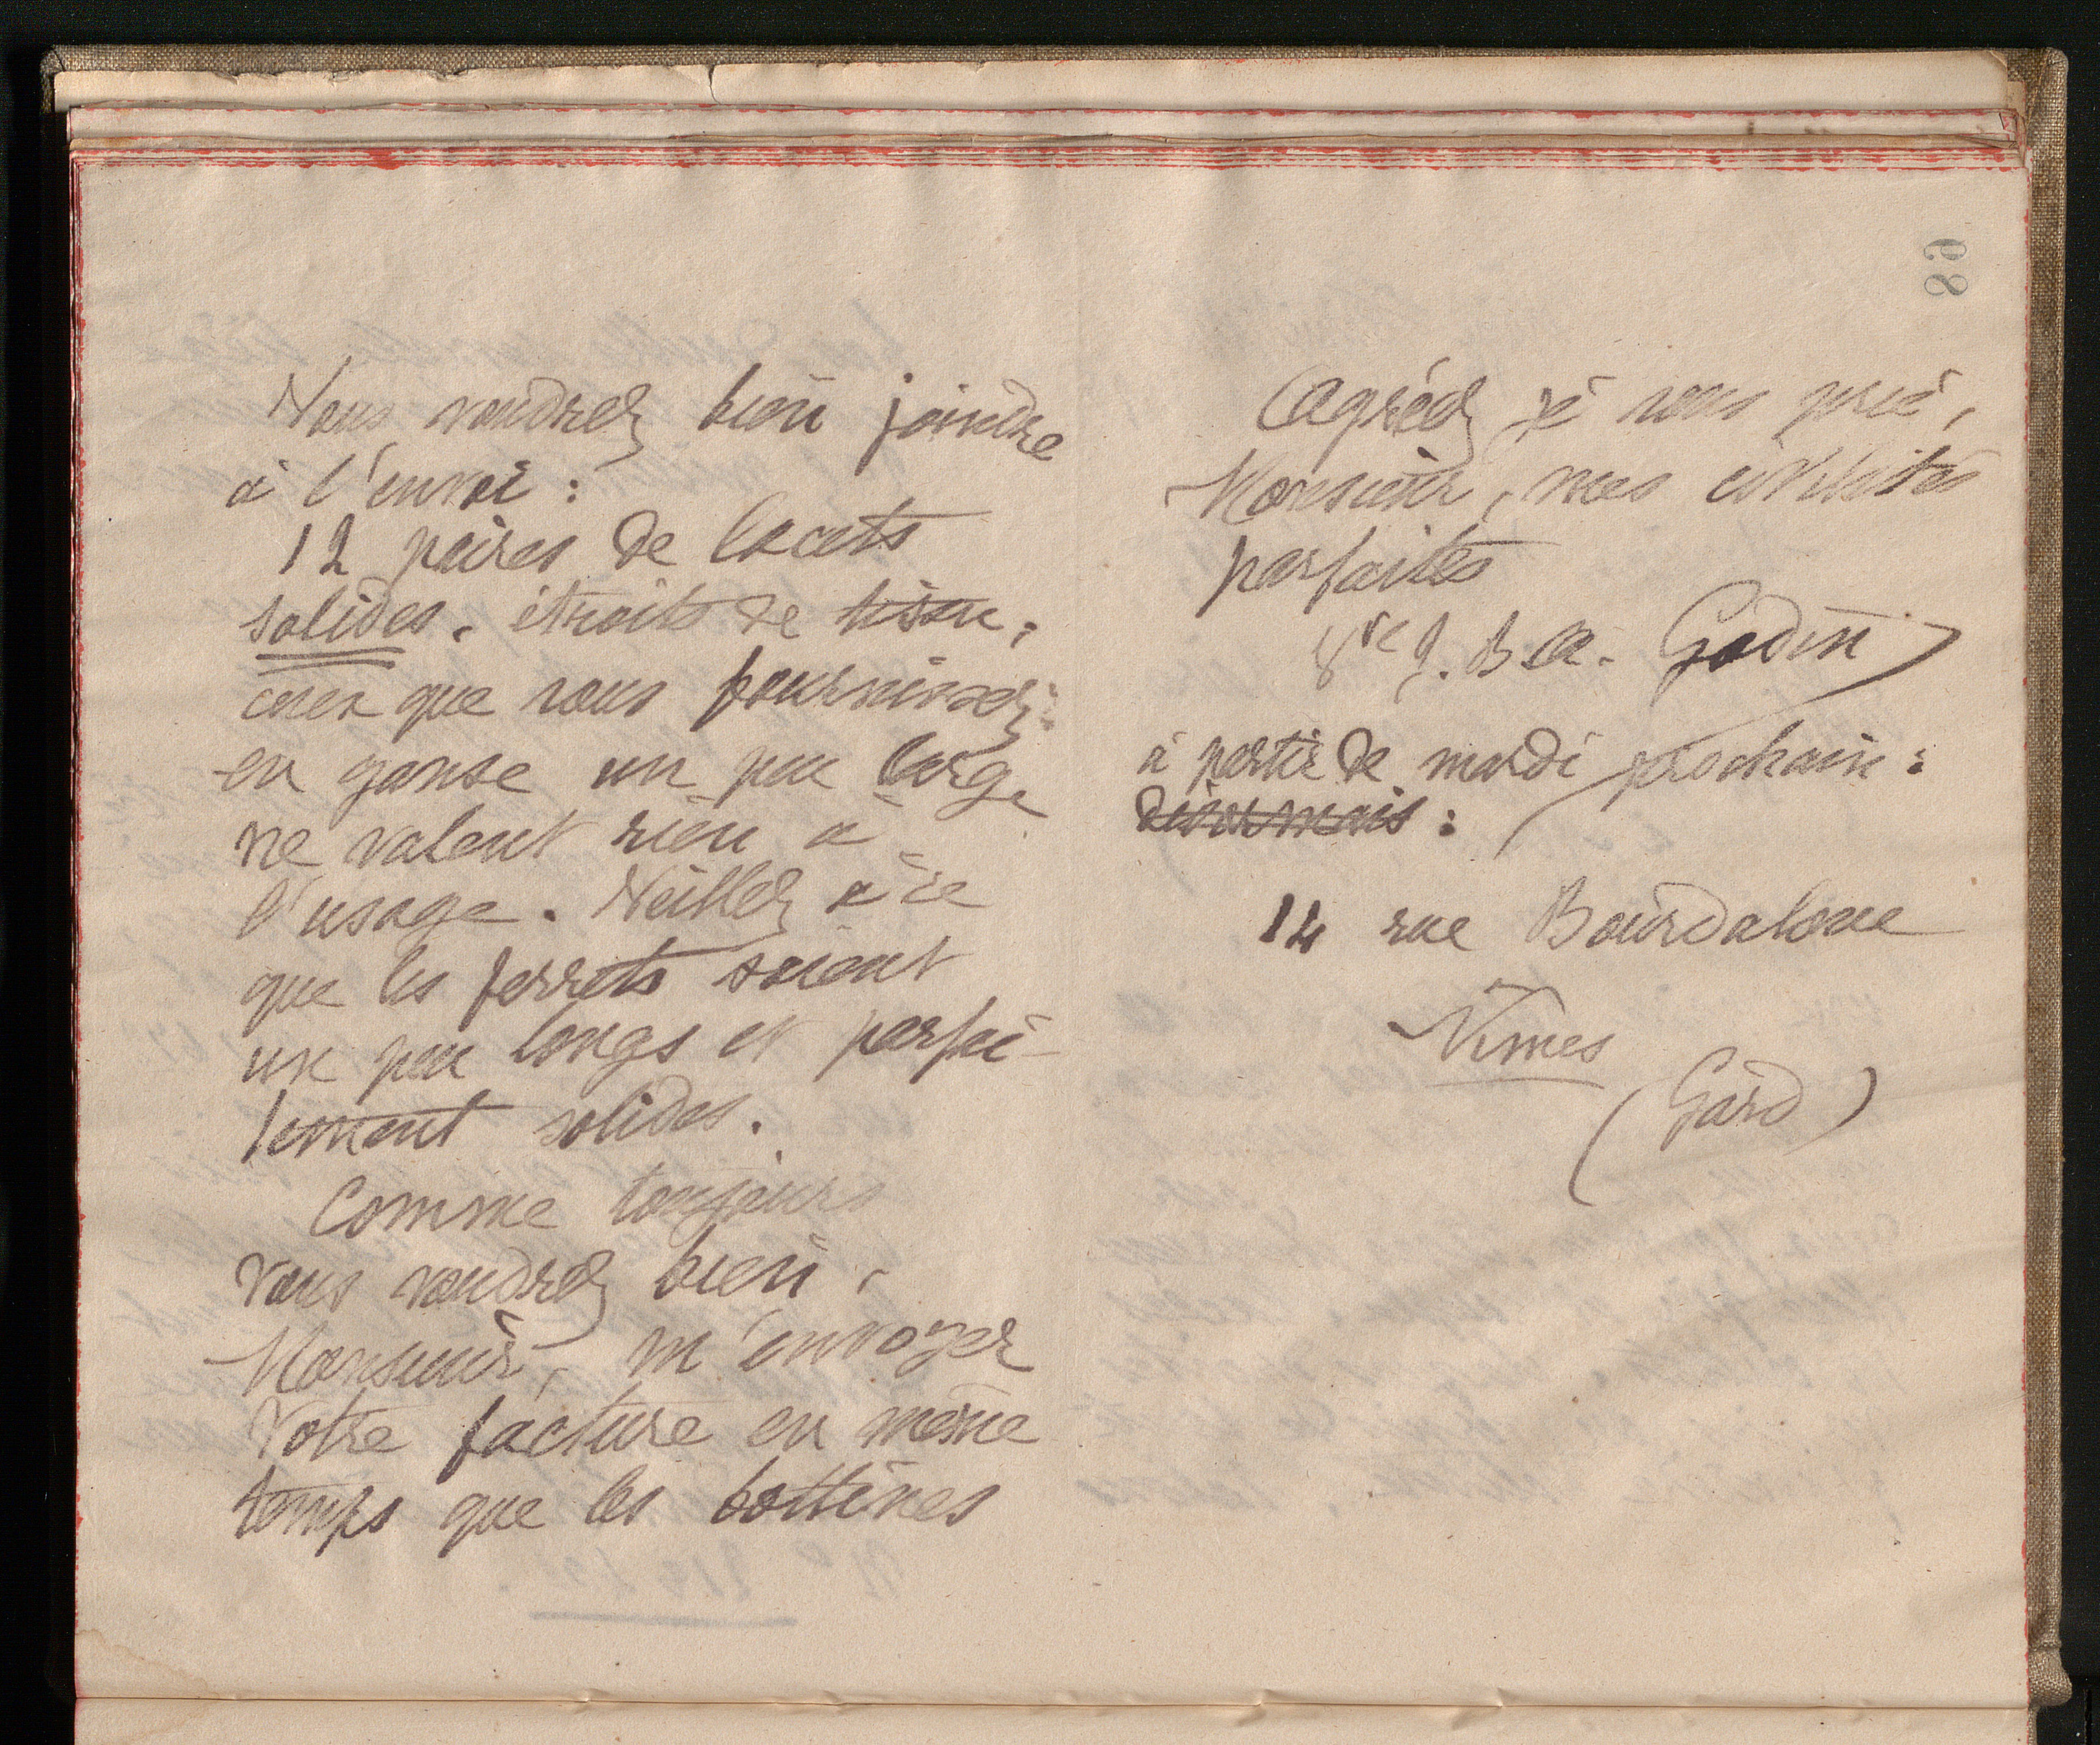 Vous voudrez bien joindre
à l'envoi :
12 paires de lacets
solides, étroits de tissu ;
ceux que vous fournissez
en ganse un peu large
ne valent rien à
l'usage. Veillez à ce
que les ferrets soient
un peu longs et parfai-
tement solides.
Comme toujours
vous voudrez bien,
Monsieur, m'envoyer
votre facture en même
temps que les bottines
89
Agréez je vous prie,
Monsieur, mes civilités
parfaites
Vve J. B. A. Godin
à partir de mardi prochain :
désormais :
14 rue Bourdaloue
Nîmes
(Gard)